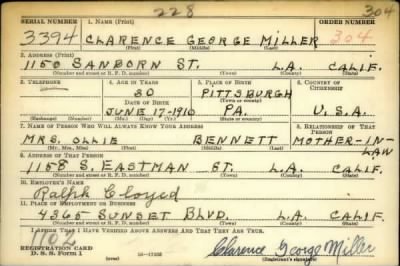 228 304
SERIAL NUMBER 1. NAME (Print) ORDER NUMBER
3394 CLARENCE GEORGE MILLER 304
(First) (Middle) (Last)
2. ADDRESS (Print)
1150 SANBORN ST. L.A. CALIF.
(Number and street or R. F. D. number) (Town) (County) (State)
3. TELEPHONE 4. AGE IN YEARS 5. PLACE OF BIRTH 6. COUNTRY OF CITIZENSHIP
30 PITTSBURGH
DATE OF BIRTH (Town or county)
JUNE-17-1910 PA. U.S.A.
(Exchange) (Number) (Mo.) (Day) (Yr.) (State or country)
7. NAME OF PERSON WHO WILL ALWAYS KNOW YOUR ADDRESS 8. RELATIONSHIP OF THAT PERSON
MRS. OLLIE BENNETT MOTHER-IN-LAW
(Mr., Mrs., Miss) (First) (Middle) (Last)
9. ADDRESS OF THAT PERSON
1158 S. EASTMAN ST. L.A. CALIF.
(Number and street or R. F. D. number) (Town) (County) (State)
10. EMPLOYER'S NAME
Ralph Cloyed
11. PLACE OF EMPLOYMENT OR BUSINESS
4365 SUNSET BLVD. L.A. CALIF.
(Number and street or R. F. D. number) (Town) (County) (State)
I AFFIRM THAT I HAVE VERIFIED ABOVE ANSWERS AND THAT THEY ARE TRUE.
REGISTRATION CARD
D. S. S. Form 1 Clarence George Miller
(Registrant's signature)